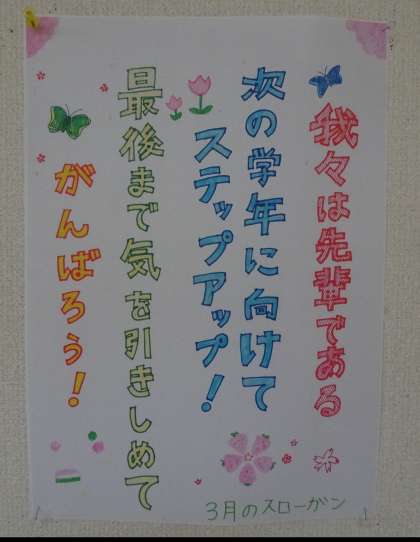 我々は先輩である
次の学年に向けて
ステップアップ！
最後まで気を引きしめて
がんばろう！
3月のスローガン